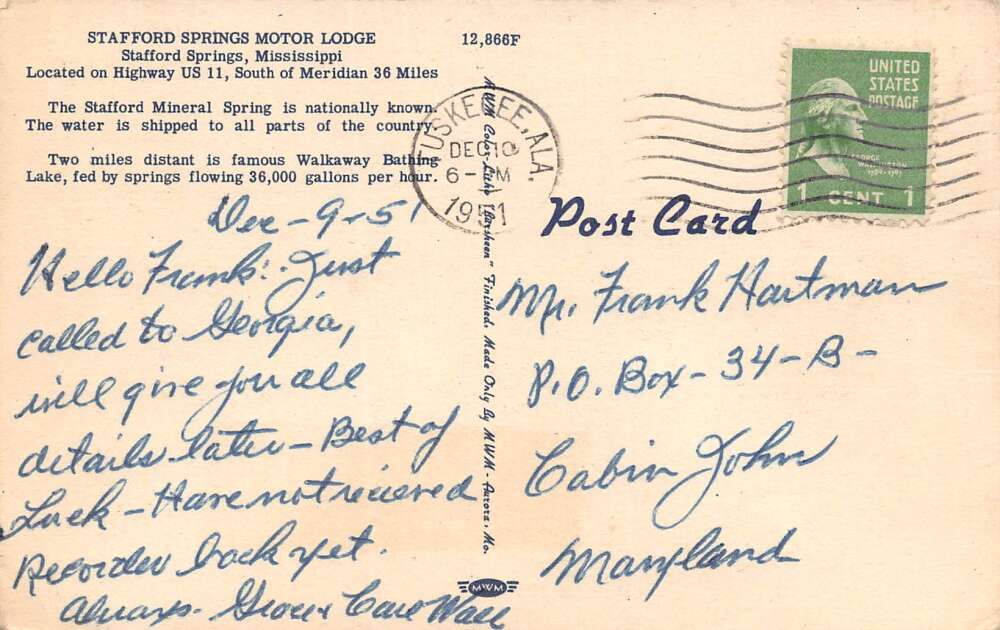 STAFFORD SPRINGS MOTOR LODGE
Stafford Springs, Mississippi
Located on Highway US 11, South of Meridian 36 Miles
The Stafford Mineral Spring is nationally known.
The water is shipped to all parts of the country.
Two miles distant is famous Walkaway Bathing
Lake, fed by springs flowing 36,000 gallons per hour.
12,866F
TUSKEGEE, ALA.
DEC 10
6 - PM
1951
UNITED
STATES
POSTAGE
GEORGE
WASHINGTON
1789-1797
1 CENT 1
Post Card
Dec-9-51
Hello Frank: Just
called to Georgia,
will give you all
details later - Best of
Luck - Have not recieved
Recorder back yet.
Always - Carl Wall
MWM Color-Litho "Larsheen" Finished. Made Only By MWM - Aurora, Mo.
MWM
Mr. Frank Hartman
P.O. Box - 34-B-
Cabin John
Maryland